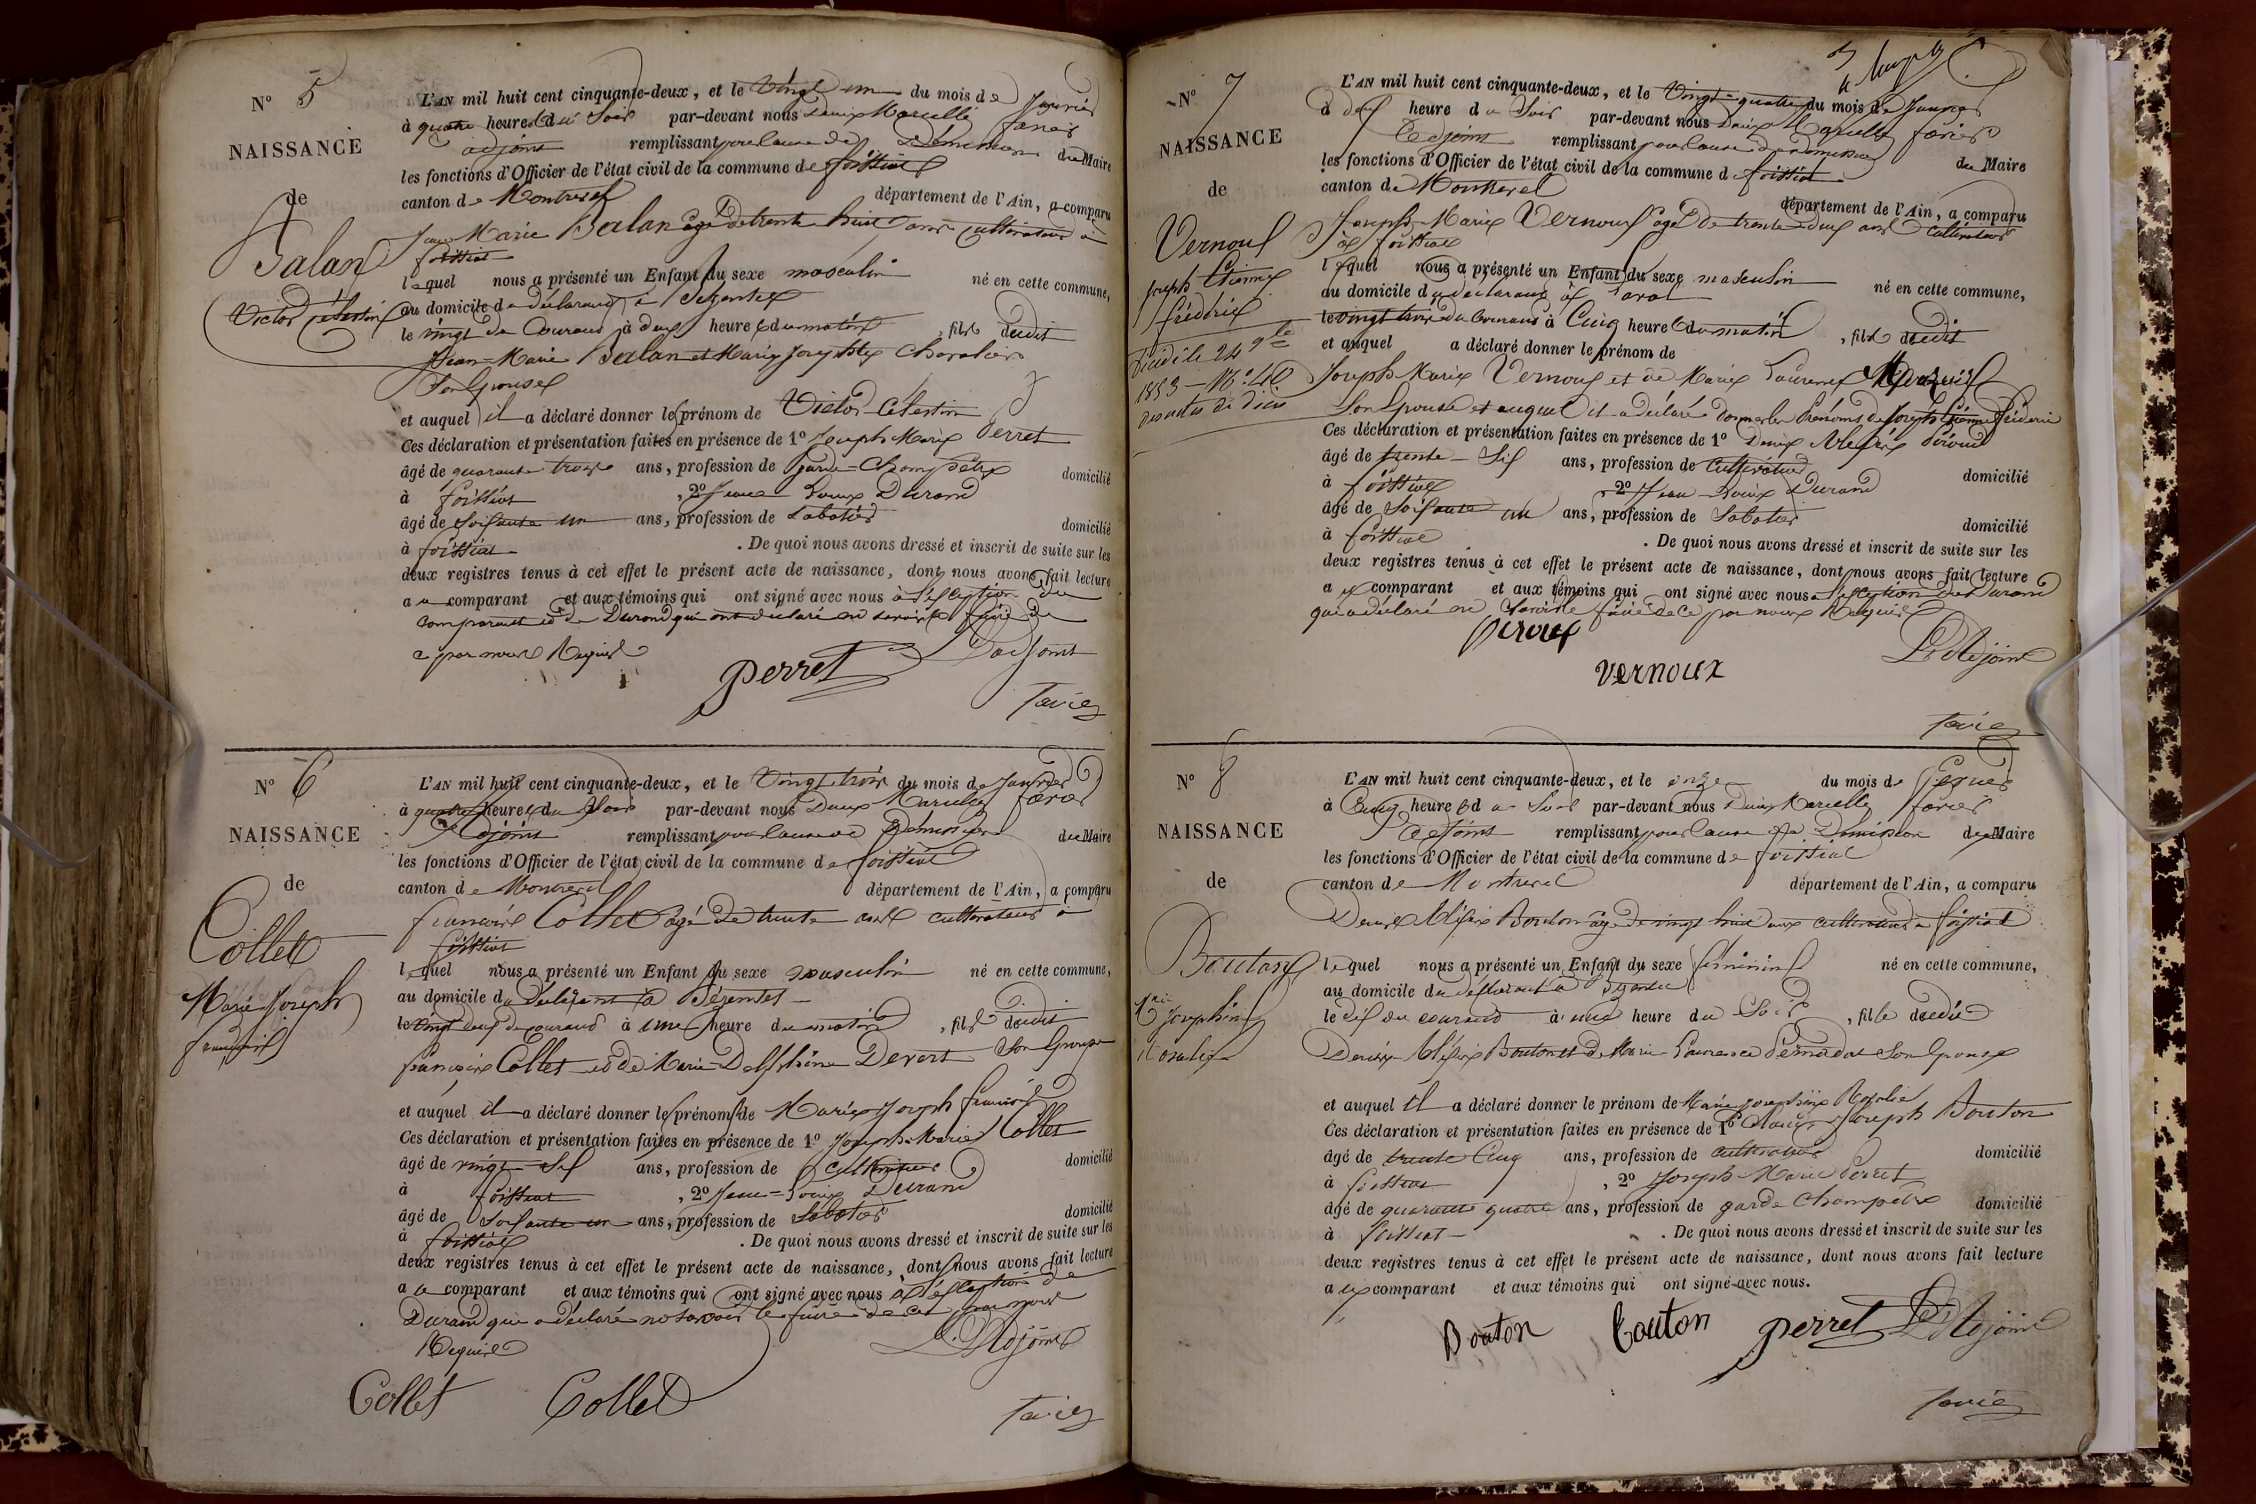 N° 5
NAISSANCE
de
Balan
Victor Célestin
L'AN mil huit cent cinquante-deux, et le vingt un du mois de Janvier
à quatre heures du soir par-devant nous Denis Marcelle favier
adjoint remplissant pour cause de Démission du Maire
les fonctions d'Officier de l'état civil de la commune de foissiat
canton de Montrevel département de l'Ain, a comparu
Jean Marie Balan agé de trente huit ans cultivateur à
foissiat
lequel nous a présenté un Enfant du sexe masculin né en cette commune,
au domicile du déclarant à
le vingt du Courant à deux heures du matin, fils dudit
Jean-Marie Balan et Marie Josephte Chevalier
Son Epouse
et auquel il a déclaré donner les prénom de Victor Célestin
Ces déclaration et présentation faites en présence de 1° Joseph Marie Perret
âgé de quarante trois ans, profession de Garde-Champêtre domicilié
à foissiat, 2° Jean Louis Durand
âgé de Soixante un ans, profession de Sabotier domicilié
à foissiat. De quoi nous avons dressé et inscrit de suite sur les
deux registres tenus à cet effet le présent acte de naissance, dont nous avons fait lecture
au comparant et aux témoins qui ont signé avec nous à l'exception du
comparant et de Durand qui ont déclaré ne savoir le faire de
ce par nous Requis
L'adjoint
perret
favier
N° 6
NAISSANCE
de
Collet
Marie Joseph
françois
L'AN mil huit cent cinquante-deux, et le vingt trois du mois de Janvier
à quatre heures du Soir par-devant nous Denis Marcelle favier
Adjoint remplissant pour cause de Démission du Maire
les fonctions d'Officier de l'état civil de la commune de foissiat
canton de Montrevel département de l'Ain, a comparu
françois Collet agé de trente ans cultivateur à
foissiat
lequel nous a présenté un Enfant du sexe masculin né en cette commune,
au domicile du Déclarant à
le vingt deux du courant à une heure du matin, fils dudit
françois Collet et de Marie Delphine Devert Son Epouse
et auquel il a déclaré donner les prénoms de Marie Joseph françois
Ces déclaration et présentation faites en présence de 1° Joseph Marie Collet
âgé de vingt Six ans, profession de cultivateur domicilié
à foissiat, 2° Jean-Louis Durand
âgé de Soixante un ans, profession de Sabotier domicilié
à foissiat. De quoi nous avons dressé et inscrit de suite sur les
deux registres tenus à cet effet le présent acte de naissance, dont nous avons fait lecture
au comparant et aux témoins qui ont signé avec nous à l'exception de
Durand qui a déclaré ne savoir le faire de ce par nous
Requis
L'Adjoint
Collet Collet
favier
N° 7
NAISSANCE
de
Vernoux
Joseph Etienne
frédéric
décédé le 24 9bre
1853 - N° 40
des actes de décès
L'AN mil huit cent cinquante-deux, et le Vingt-quatre du mois de Janvier
à deux heure du Soir par-devant nous Denis Marcelle favier
Adjoint remplissant pour cause de démission du Maire
les fonctions d'Officier de l'état civil de la commune de foissiat
canton de Montrevel département de l'Ain, a comparu
Joseph Marie Vernoux agé de trente deux ans cultivateur
à foissiat
lequel nous a présenté un Enfant du sexe masculin né en cette commune,
au domicile du déclarant à
le vingt trois du Courant à Cinq heures du matin, fils dudit
et auquel a déclaré donner le prénom de
Joseph Marie Vernoux et de Marie Laurence
Son Epouse et auquel il a déclaré donner les Prénoms de Joseph Etienne Frédéric
Ces déclaration et présentation faites en présence de 1° Denis
âgé de trente-Six ans, profession de Cultivateur domicilié
à foissiat, 2° Jean-Louis Durand
âgé de Soixante un ans, profession de Sabotier domicilié
à foissiat. De quoi nous avons dressé et inscrit de suite sur les
deux registres tenus à cet effet le présent acte de naissance, dont nous avons fait lecture
aux comparant et aux témoins qui ont signé avec nous à l'exception de Durand
qui a déclaré ne savoir le faire de ce par nous Requis
L'Adjoint
vernoux
favier
N° 8
NAISSANCE
de
Bouton
Mrie Josephine
Rosalie
L'AN mil huit cent cinquante-deux, et le onze du mois de février
à Cinq heures du Soir par-devant nous Denis Marcelle favier
adjoint remplissant pour cause de Démission du Maire
les fonctions d'Officier de l'état civil de la commune de foissiat
canton de Montrevel département de l'Ain, a comparu
Denis Alexis Bouton âgé de vingt huit ans cultivateur à foissiat
lequel nous a présenté un Enfant du sexe féminin né en cette commune,
au domicile du déclarant à
le dix du courant à une heure du Soir, fille dudit
Denis Alexis Bouton et de Marie Laurence Son Epouse
et auquel il a déclaré donner le prénom de Marie Josephine Rosalie
Ces déclaration et présentation faites en présence de 1° Joseph Bouton
âgé de trente Cinq ans, profession de cultivateur domicilié
à foissiat, 2° Joseph Marie Perret
âgé de quarante quatre ans, profession de garde Champêtre domicilié
à foissiat. De quoi nous avons dressé et inscrit de suite sur les
deux registres tenus à cet effet le présent acte de naissance, dont nous avons fait lecture
aux comparant et aux témoins qui ont signé avec nous.
Bouton bouton perret L'Adjoint
favier